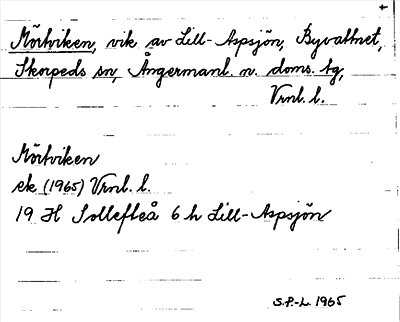 Mörtviken, vik av Lill-Aspsjön, Byvattnet,
Skorpeds sn, Ångermanl. n. doms. tg,
Vrnl. l.
Mörtviken
ek (1965) Vrnl. l.
19 H Sollefteå 6 h Lill-Aspsjön
S.P.-L. 1965